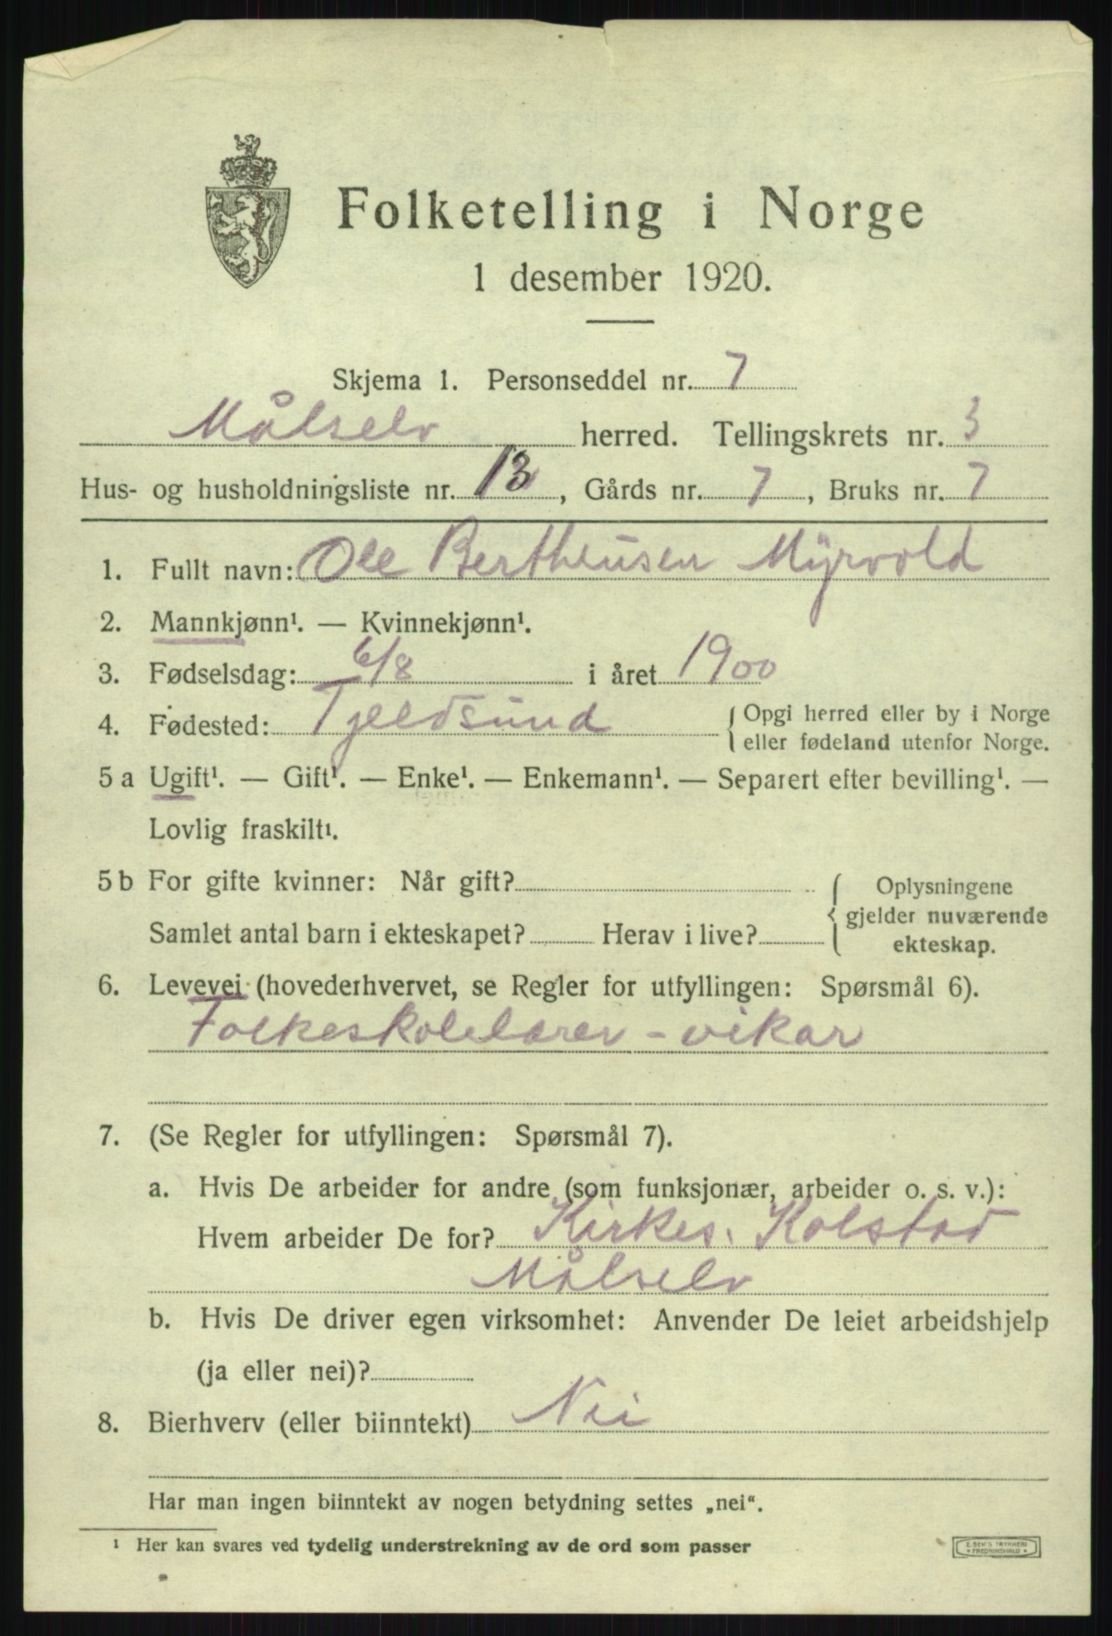 Folketelling i Norge
1 desember 1920.
Skjema 1. Personseddel nr. 7
Målselv herred. Tellingskrets nr. 3
Hus- og husholdningsliste nr. 13, Gårds nr. 7, Bruks nr. 7
1. Fullt navn: Ole Bertheusen Myrvold
2. Mannkjønn¹. — Kvinnekjønn¹.
3. Fødselsdag: 6/8 i året 1900
4. Fødested: Tjeldsund { Opgi herred eller by i Norge
eller fødeland utenfor Norge.
5 a Ugift¹. — Gift¹. — Enke¹. — Enkemann¹. — Separert efter bevilling¹. —
Lovlig fraskilt¹.
5 b For gifte kvinner: Når gift? { Oplysningene
gjelder nuværende
Samlet antal barn i ekteskapet? Herav i live? ekteskap.
6. Levevei (hovederhvervet, se Regler for utfyllingen: Spørsmål 6).
Folkeskolelærer - vikar
7. (Se Regler for utfyllingen: Spørsmål 7).
a. Hvis De arbeider for andre (som funksjonær, arbeider o. s. v.):
Hvem arbeider De for? Kirkes. Kolstad
Målselv
b. Hvis De driver egen virksomhet: Anvender De leiet arbeidshjelp
(ja eller nei)?
8. Bierhverv (eller biinntekt) Nei
Har man ingen biinntekt av nogen betydning settes „nei“.
¹ Her kan svares ved tydelig understrekning av de ord som passer